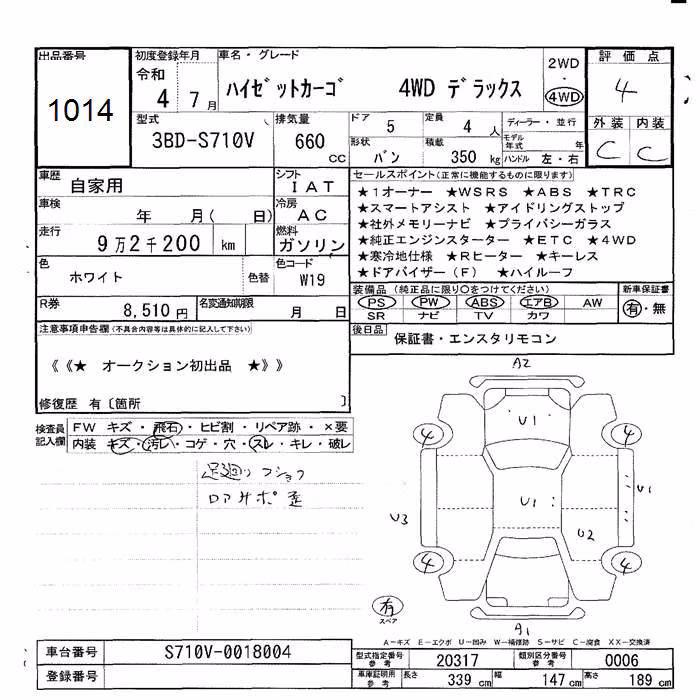 出品番号
1014
初度登録年月
令和 4 7月
車名・グレード
ハイゼットカーゴ 4WD デラックス
2WD
・
4WD
評価点
4
外装 内装
C C
型式
3BD-S710V
排気量
660 cc
ドア 5
定員 4 人
ディーラー・並行
モデル年式 年
形状 バン
積載 350 kg
ハンドル 左・右
車歴 自家用
シフト I A T
車検 年 月( 日)
冷房 A C
走行 9万2千200 km
燃料 ガソリン
色 ホワイト 色替
色コード W19
R券 8,510円
名変通知期限 月 日
セールスポイント(正常に機能するものに限ります)
★1オーナー ★WSRS ★ABS ★TRC
★スマートアシスト ★アイドリングストップ
★社外メモリーナビ ★プライバシーガラス
★純正エンジンスターター ★ETC ★4WD
★寒冷地仕様 ★Rヒーター ★キーレス
★ドアバイザー(F) ★ハイルーフ
装備品(純正品に限り○をつけてください)
PS PW ABS エアB AW
SR ナビ TV カワ
新車保証書
有・無
後日品
保証書・エンスタリモコン
注意事項申告欄(不具合内容等は具体的に記入して下さい)
《《★ オークション初出品 ★》》
修復歴 有〔箇所 〕
検査員記入欄
FW キズ・飛石・ヒビ割・リペア跡・×要
内装 キズ・汚レ・コゲ・穴・スレ・キレ・破レ
足廻り フショク
ロアサポ 歪
A2
U1
4 4
U1
U1
U3
U2
4 4
有
スペア
A1
A-キズ E-エクボ U-凹み W-補修跡 S-サビ C-腐食 XX-交換済
車台番号 S710V-0018004
登録番号
型式指定番号 参考 20317
類別区分番号 参考 0006
車庫証明用 参考 長さ 339 cm 幅 147 cm 高さ 189 cm